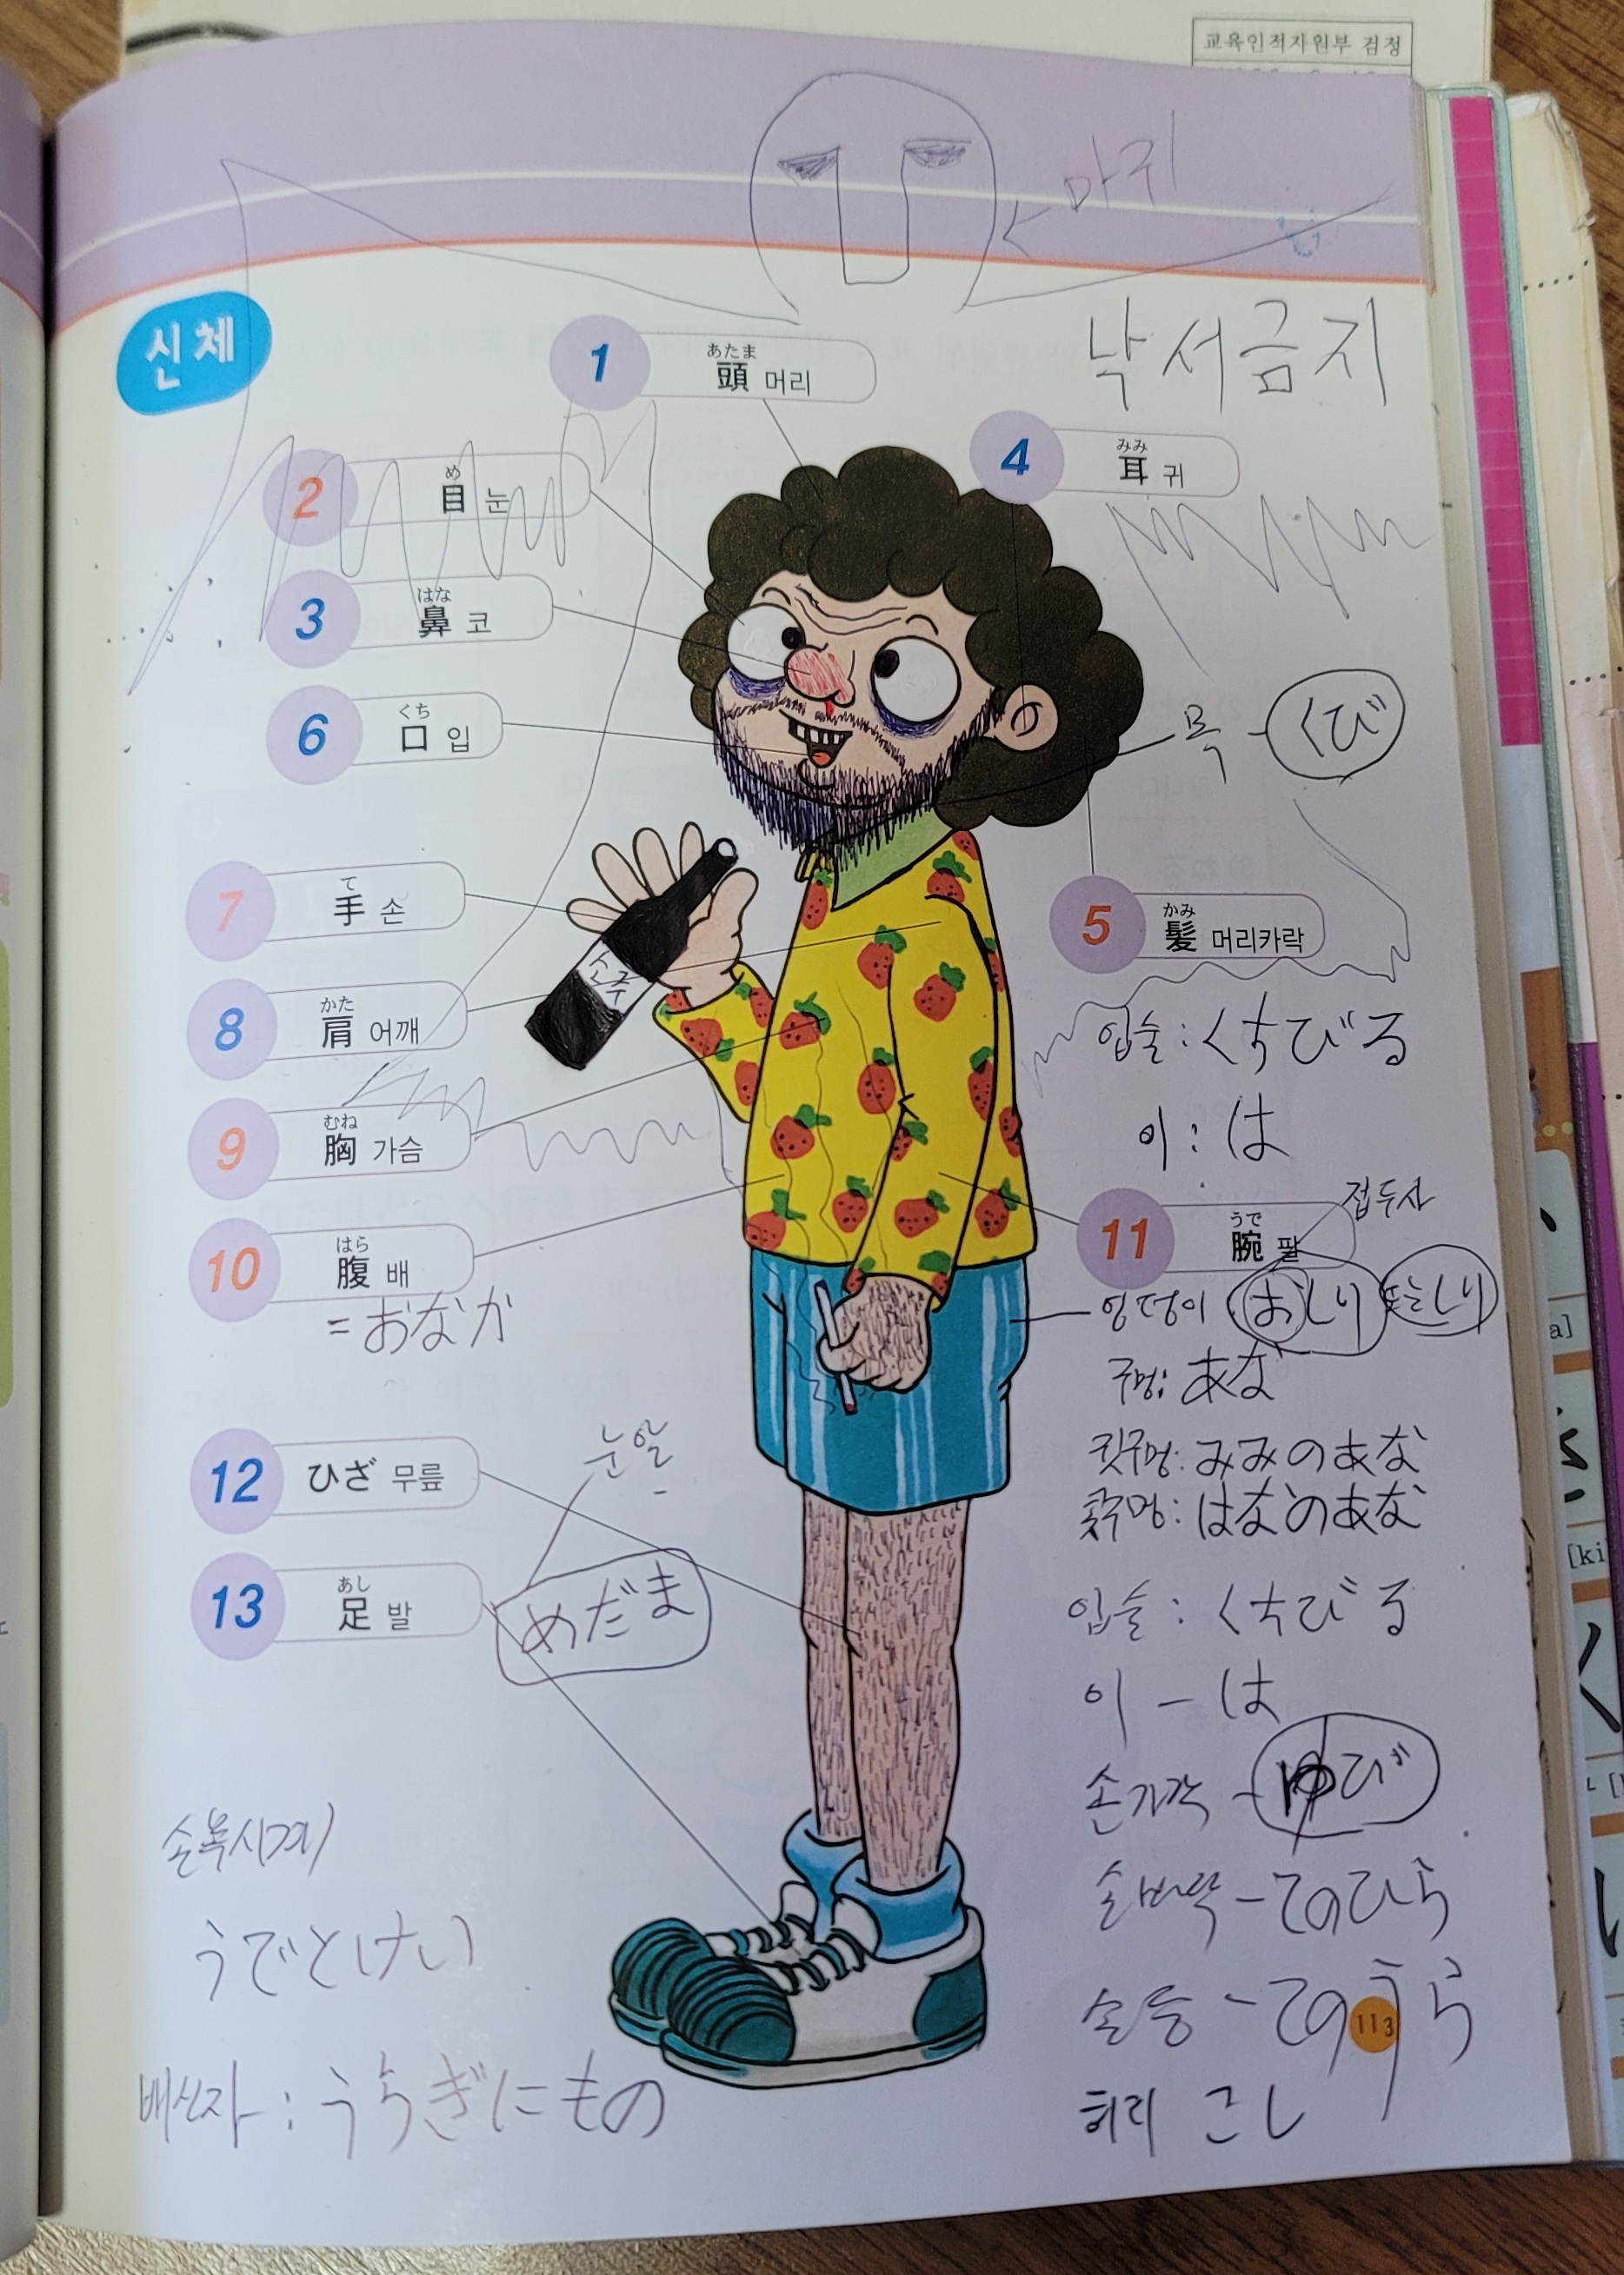 교육인적자원부 검정
마귀
신체
낙서금지
1 頭 머리
あたま
2 目 눈
め
4 耳 귀
みみ
3 鼻 코
はな
6 口 입
くち
목 - くび
7 手 손
て
5 髪 머리카락
かみ
소주
8 肩 어깨
かた
입술 : くちびる
9 胸 가슴
むね
이 : は
10 腹 배
はら
= おなか
접두사
11 腕 팔
うで
엉덩이 おしり
구멍: あな
12 ひざ 무릎
눈알
귓구멍: みみのあな
콧구멍: はなのあな
13 足 발
あし
めだま
입술 : くちびる
이 - は
손가락 - ゆび
손목시계
손바닥 - てのひら
うでとけい
손등 - てのうら
113
배신자 : うらぎにもの
허리 こし
[ki
a]